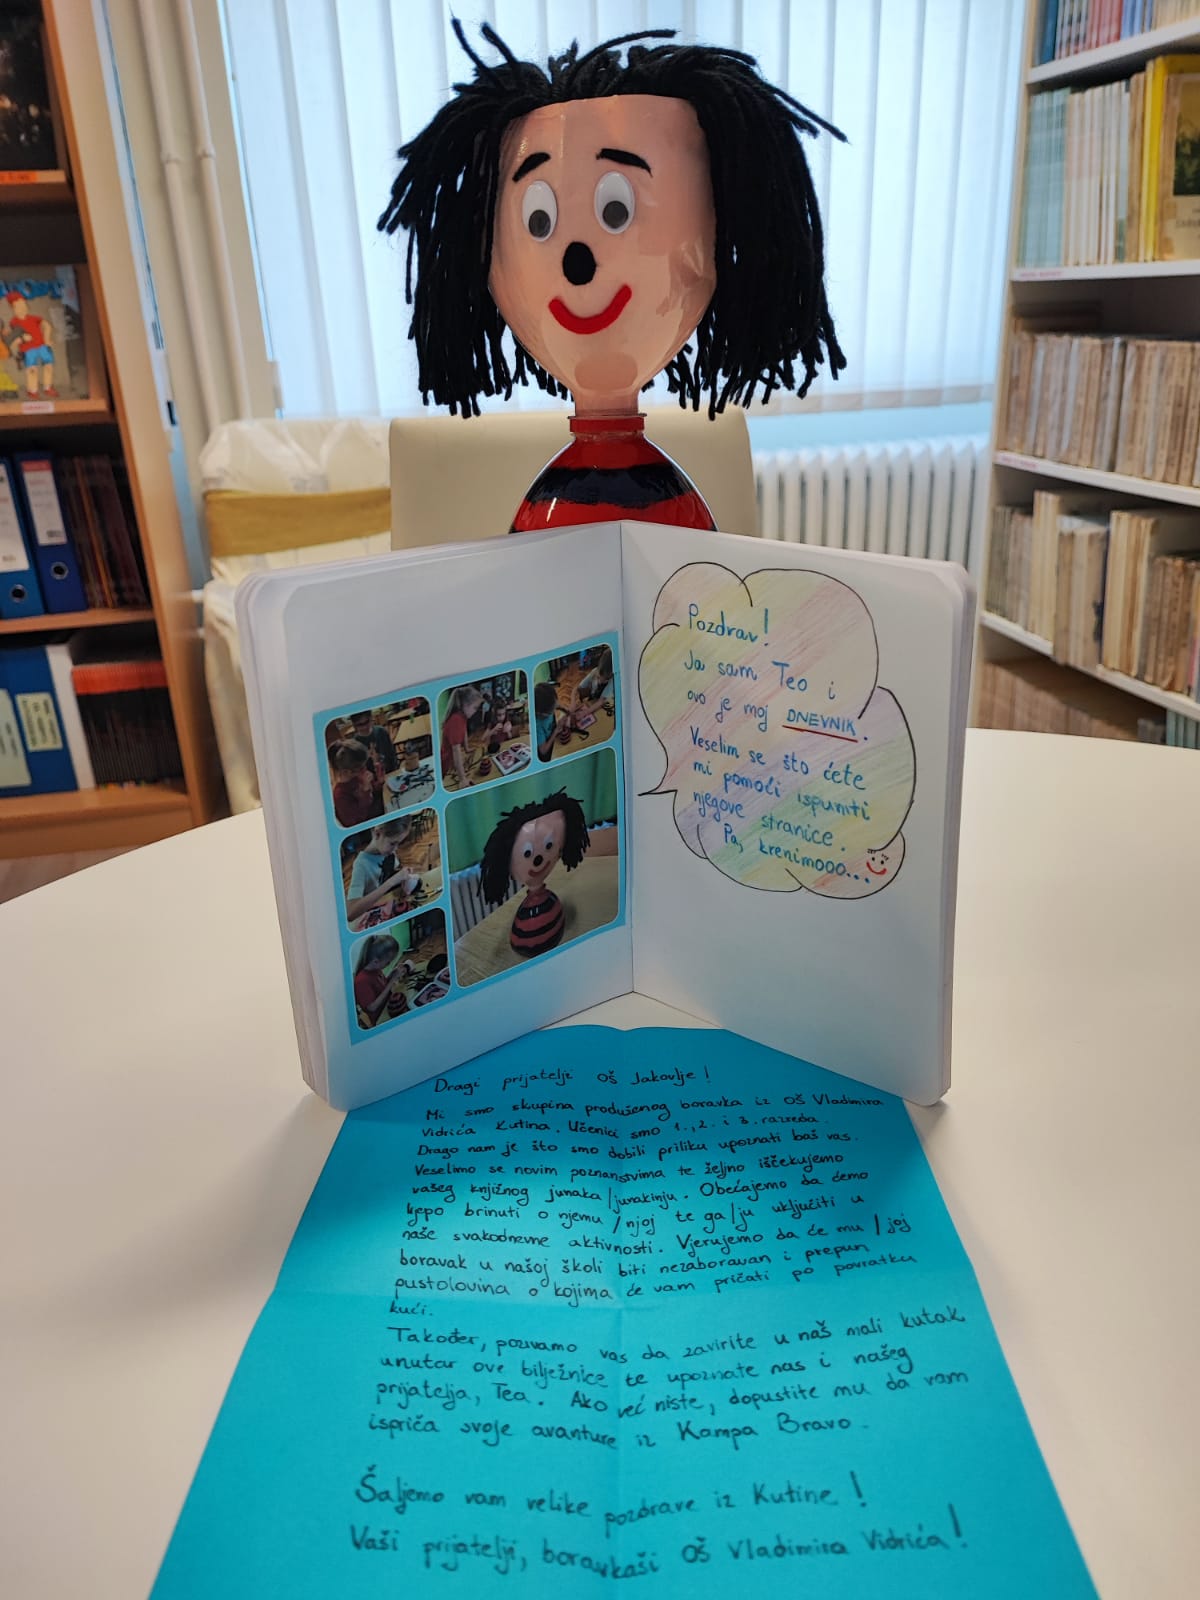 Pozdrav!
Ja sam Teo i
ovo je moj DNEVNIK.
Veselim se što ćete
mi pomoći ispuniti
njegove stranice.
Pa, krenimooo...
Dragi prijatelji OŠ Jakovlje!
Mi smo skupina produženog boravka iz OŠ Vladimira
Vidrića Kutina. Učenici smo 1., 2. i 3. razreda.
Drago nam je što smo dobili priliku upoznati baš vas.
Veselimo se novim poznanstvima te željno iščekujemo
vašeg knjižnog junaka/junakinju. Obećajemo da ćemo
lijepo brinuti o njemu/njoj te ga/ju uključiti u
naše svakodnevne aktivnosti. Vjerujemo da će mu/joj
boravak u našoj školi biti nezaboravan i prepun
pustolovina o kojima će vam pričati po povratku
kući.
Također, pozivamo vas da zavirite u naš mali kutak
unutar ove bilježnice te upoznate nas i našeg
prijatelja, Tea. Ako već niste, dopustite mu da vam
ispriča svoje avanture iz Kampa Bravo.
Šaljemo vam velike pozdrave iz Kutine!
Vaši prijatelji, boravkaši OŠ Vladimira Vidrića!